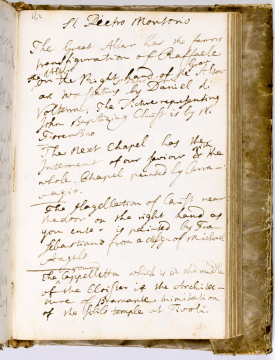 St Pietro Montorio
The Great Altar has the famous
transfiguration of Raphaele
On the Right hand of the Altar
as we enter by Daniel di
Volterra. The Picture representing
John Baptizing Christ is by
The Next Chapel has the
Interment of our Saviour & the
whole Chapel painted by Cara-
vagio.
The Flagellation of Christ near
the door on the right hand as
you enter is painted by Fra
Sebastiano from a design of Michael
Angelo
The Cappelletta which is in the middle
of the Cloister is the Architec-
ture of Bramante in imitation
of the temple at Tivoli.